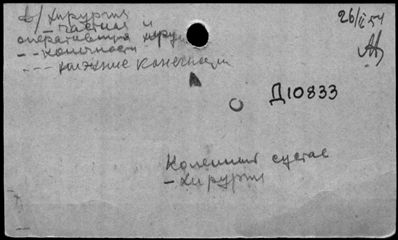 А/ Хирургия
– частная и
оперативная хирур
– – конечности
– – – нижние конечности
26/II 54
Д10833
Коленный сустав
– хирургия